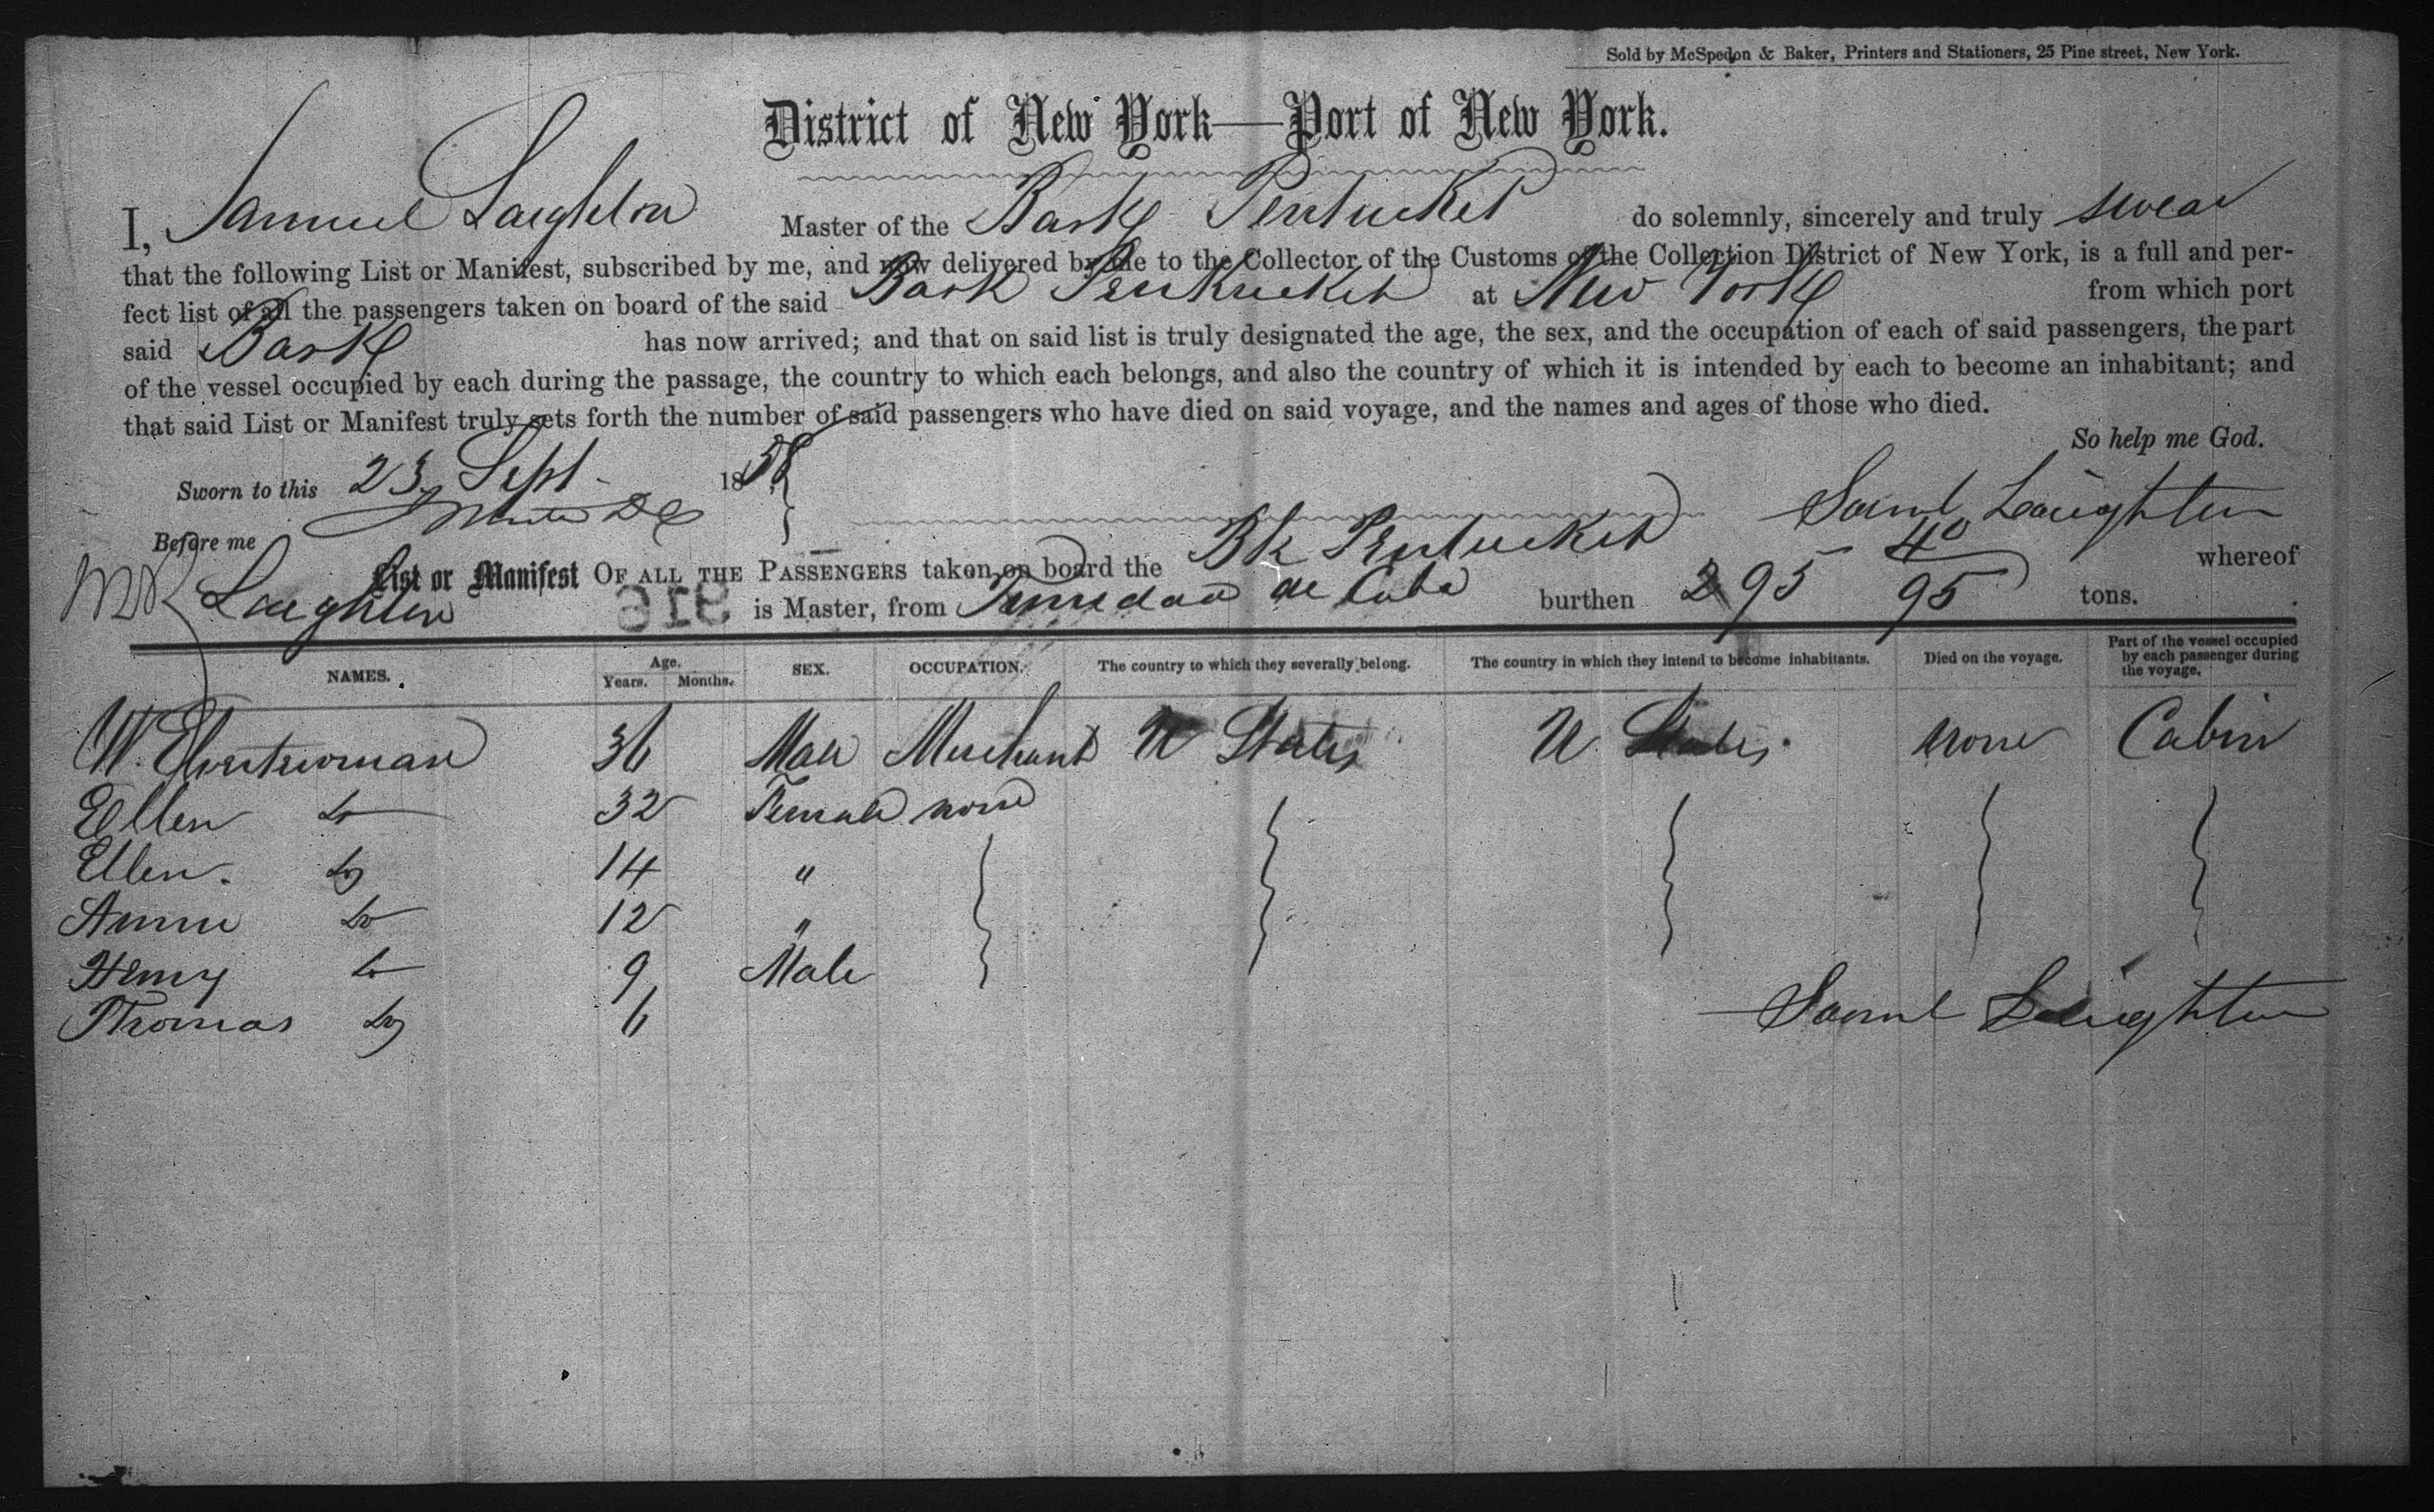 Sold by McSpedon & Baker, Printers and Stationers, 25 Pine street, New York.
District of New York—Port of New York.
I, Samuel Laighton Master of the Bark Pentucket do solemnly, sincerely and truly swear
that the following List or Manifest, subscribed by me, and now delivered by me to the Collector of the Customs of the Collection District of New York, is a full and per-
fect list of all the passengers taken on board of the said Bark Pentucket at New York from which port
said Bark has now arrived; and that on said list is truly designated the age, the sex, and the occupation of each of said passengers, the part
of the vessel occupied by each during the passage, the country to which each belongs, and also the country of which it is intended by each to become an inhabitant; and
that said List or Manifest truly sets forth the number of said passengers who have died on said voyage, and the names and ages of those who died.
So help me God.
Sworn to this 23 Sept 1858
Before me
Saml Laighton
List or Manifest OF ALL THE PASSENGERS taken on board the Bk Pentucket whereof
Laighton is Master, from de Cuba burthen 295 40/95 tons.
916
NAMES. Age. Years. Months. SEX. OCCUPATION. The country to which they severally belong. The country in which they intend to become inhabitants. Died on the voyage. Part of the vessel occupied by each passenger during the voyage.
W. 36 Male Merchant U States U. States none Cabin
Ellen Do 32 Female none
Ellen. Do 14 "
Annie Do 12 "
Henry Do 9 Male
Thomas Do 6
Saml Laighton